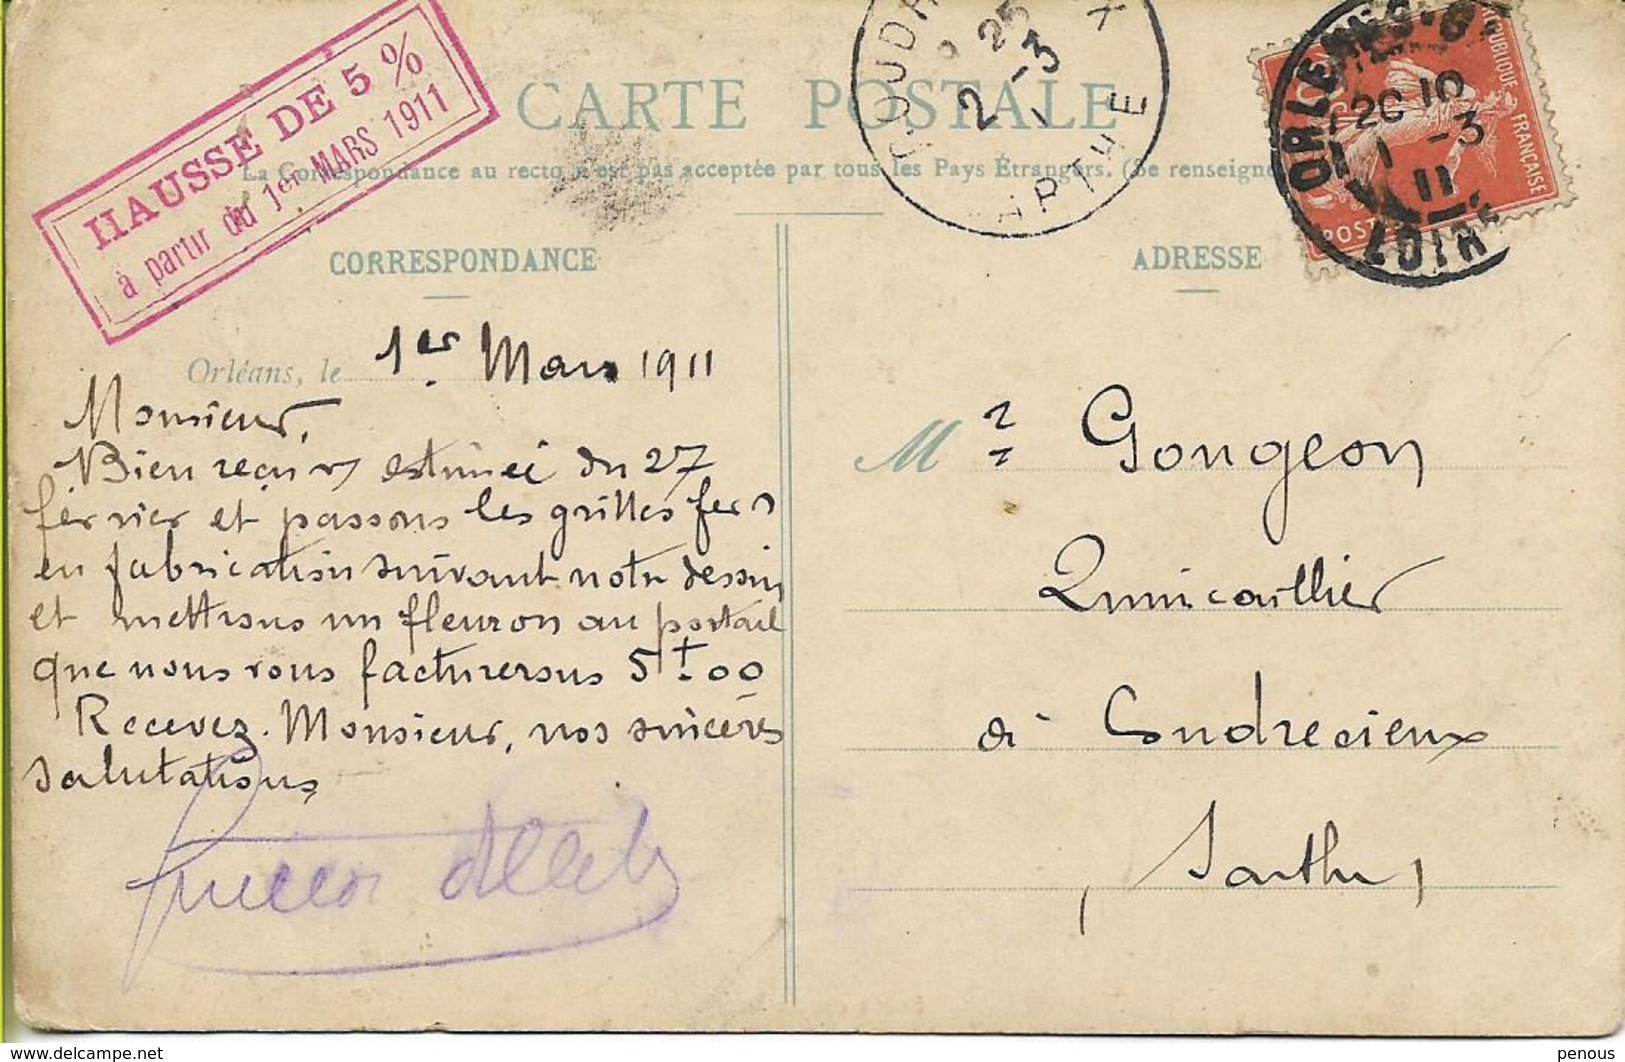 HAUSSE DE 5 %
à partir du 1er MARS 1911
CARTE POSTALE
La Correspondance au recto n'est pas acceptée par tous les Pays Étrangers. (Se renseigne
CORRESPONDANCE
ADRESSE
COUDR
25
2 -3
ARTHE
ORLEANS
20 10
1 -3
11
LOIR
RÉPUBLIQUE FRANÇAISE
POST
Orléans, le 1er Mars 1911
Monsieur,
Bien reçu v/ estimée du 27
février et passons les grilles fer
en fabrication suivant notre dessin
et mettrons un fleuron au portail
que nous vous facturerons 5f00
Recevez. Monsieur, nos sincères
salutations,
Mr Gougeon
Quincaillier
à Coudrecieux
(Sarthe)
penous
www.delcampe.net